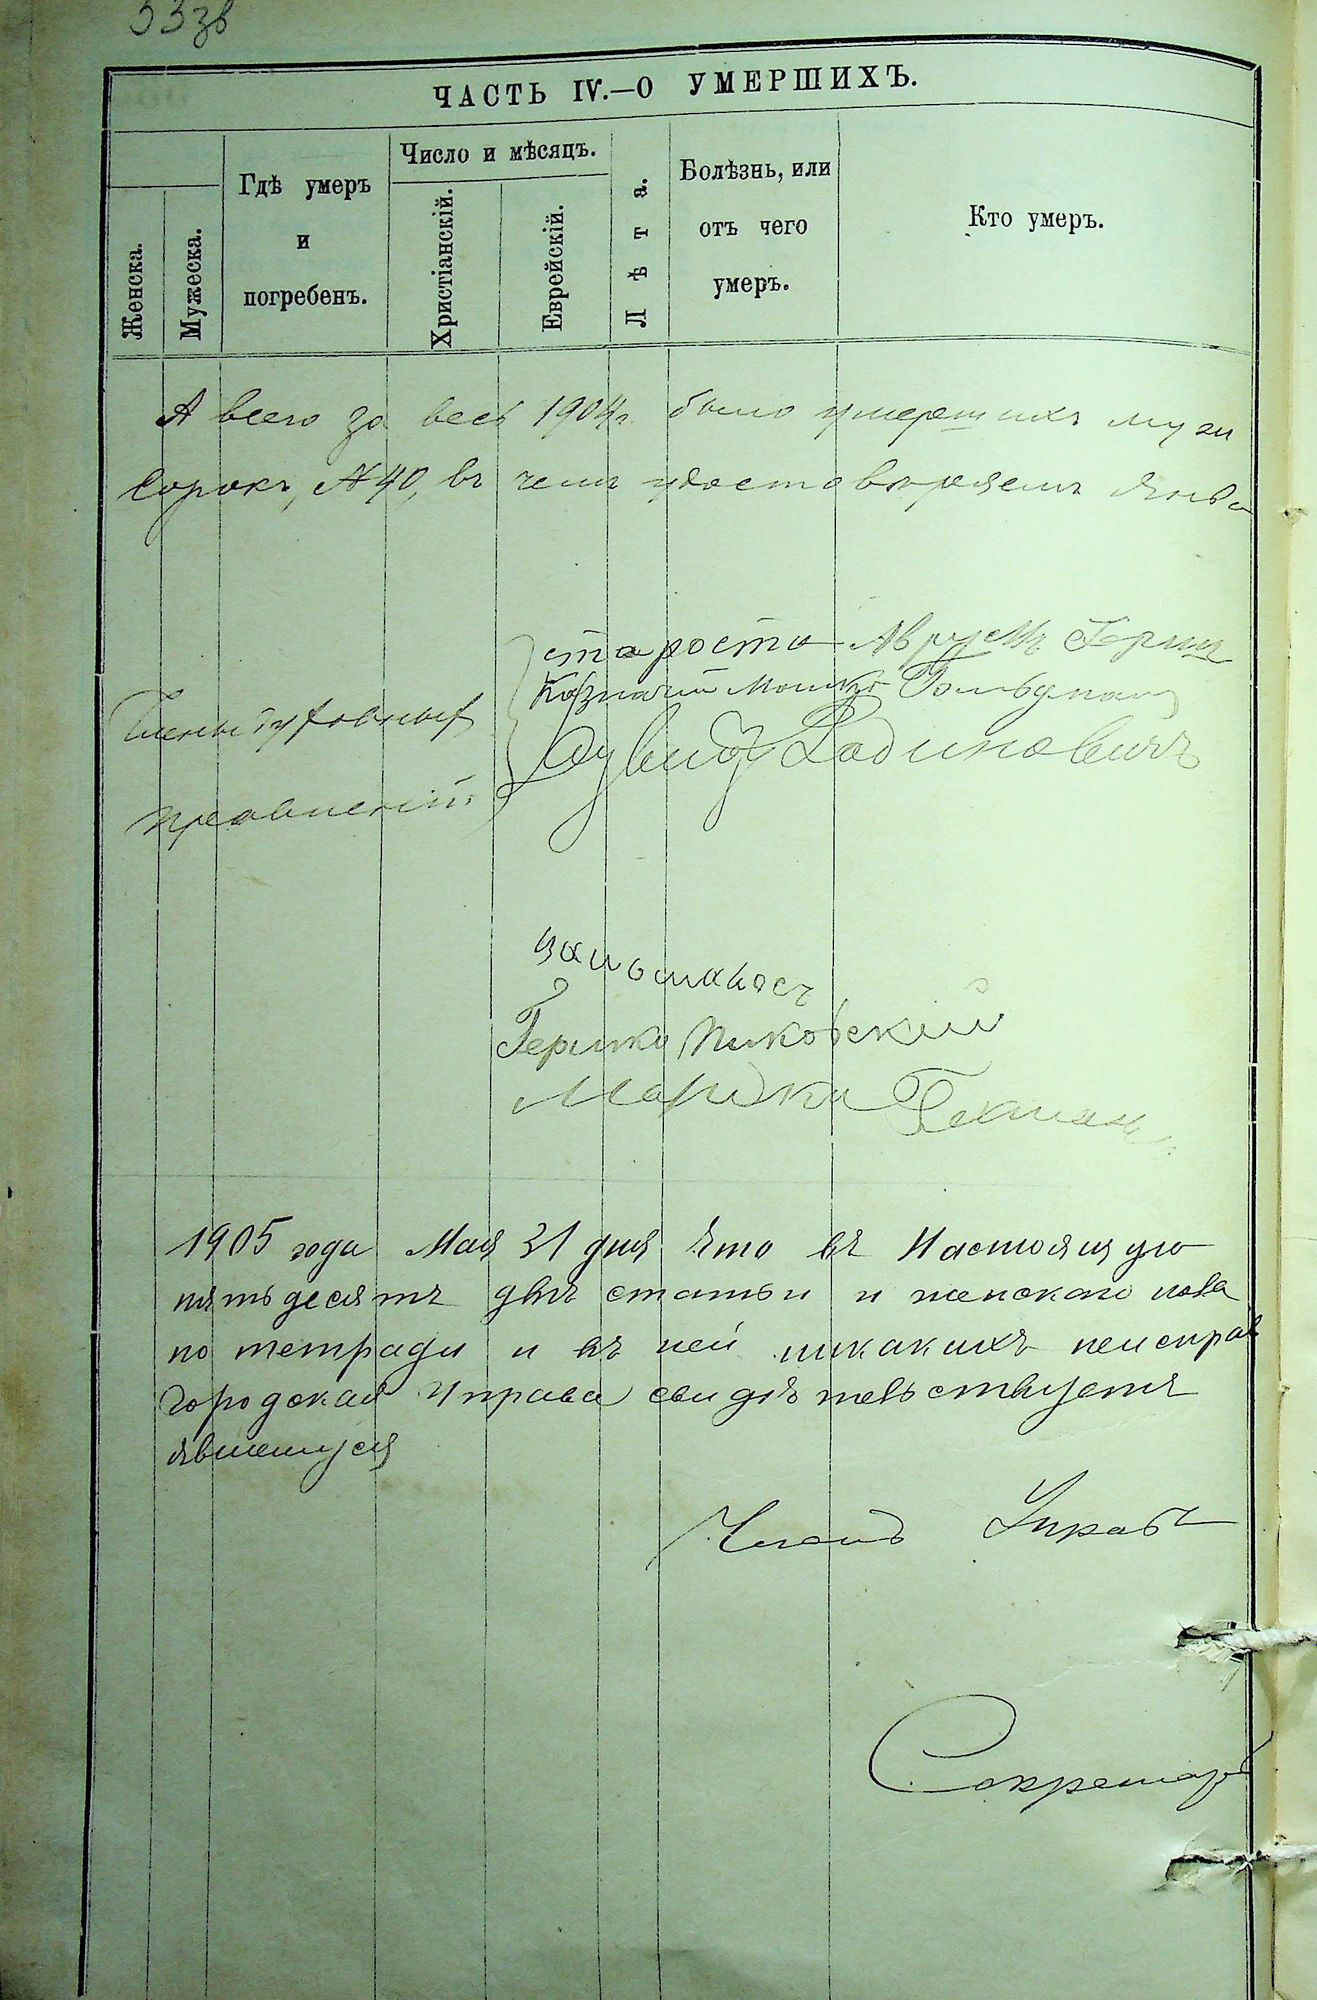 533б
ЧАСТЬ IV.—О УМЕРШИХЪ.
Женска.
Мужеска.
Гдѣ умеръ
и
погребенъ.
Число и мѣсяцъ.
Христіанскій.
Еврейскій.
Лѣта.
Болѣзнь, или
отъ чего
умеръ.
Кто умеръ.
А всего за весь 1904 г. было умершихъ муж
сорокъ, №40, въ чемъ удостовѣряемъ Янва
Члены духовныхъ
правленій
староста Аврумъ Герш
Казначий Мошко Гольдман
Дувидъ Рабиновичъ
Гершко Пиковский
1905 года Мая 31 дня Что въ Настоящую
пятьдесятъ двѣ статьи и женскаго пола
по тетради и въ ней никакихъ неисправ
городская Управа свидѣтельствуетъ
явшемуся
Членъ Управы
Секретарь